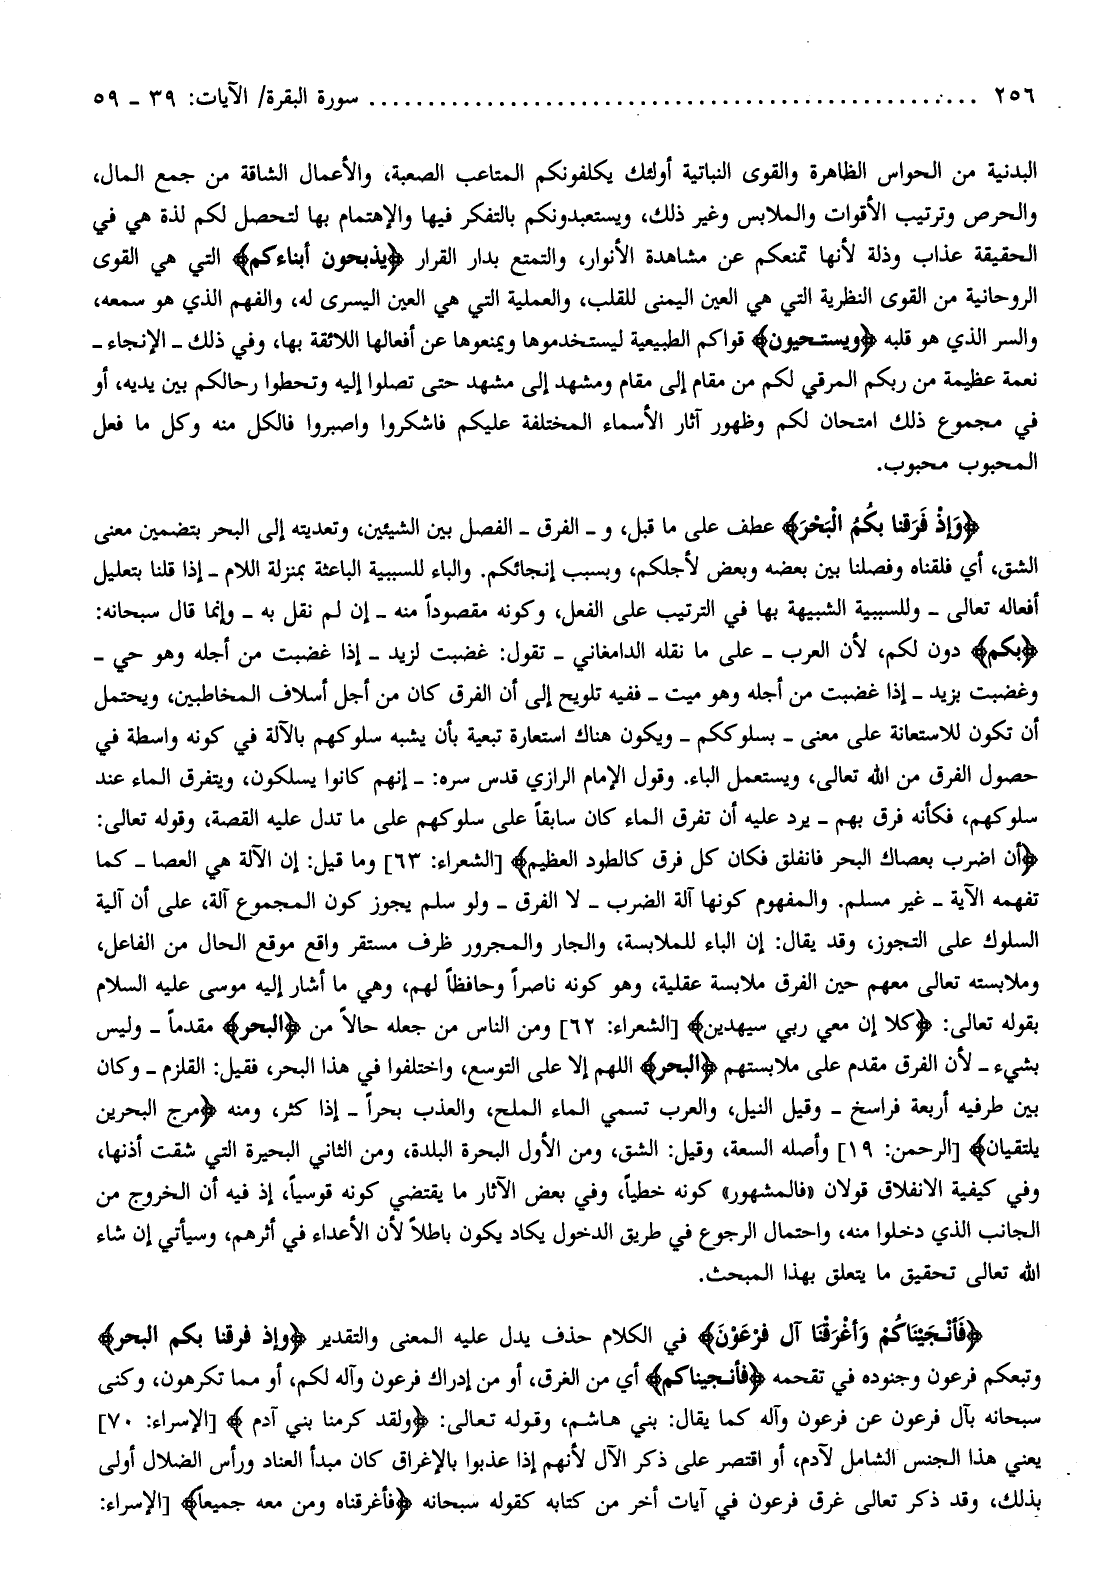 ٢٥٦ ................................................ سورة البقرة/ الآيات: ٣٩ ـ ٥٩
البدنية من الحواس الظاهرة والقوى النباتية أولئك يكلفونكم المتاعب الصعبة، والأعمال الشاقة من جمع المال،
والحرص وترتيب الأقوات والملابس وغير ذلك، ويستعبدونكم بالتفكر فيها والإهتمام بها لتحصل لكم لذة هي في
الحقيقة عذاب وذلة لأنها تمنعكم عن مشاهدة الأنوار، والتمتع بدار القرار ﴿يذبحون أبناءكم﴾ التي هي القوى
الروحانية من القوى النظرية التي هي العين اليمنى للقلب، والعملية التي هي العين اليسرى له، والفهم الذي هو سمعه،
والسر الذي هو قلبه ﴿ويستحيون﴾ قواكم الطبيعية ليستخدموها ويمنعوها عن أفعالها اللائقة بها، وفي ذلك ـ الإنجاء ـ
نعمة عظيمة من ربكم المرقي لكم من مقام إلى مقام ومشهد إلى مشهد حتى تصلوا إليه وتحطوا رحالكم بين يديه، أو
في مجموع ذلك امتحان لكم وظهور آثار الأسماء المختلفة عليكم فاشكروا واصبروا فالكل منه وكل ما فعل
المحبوب محبوب.
﴿وَإِذْ فَرَقنا بكُمُ الْبَحْرَ﴾ عطف على ما قبل، و ـ الفرق ـ الفصل بين الشيئين، وتعديته إلى البحر بتضمين معنى
الشق، أي فلقناه وفصلنا بين بعضه وبعض لأجلكم، وبسبب إنجائكم. والباء للسببية الباعثة بمنزلة اللام ـ إذا قلنا بتعليل
أفعاله تعالى ـ وللسببية الشبيهة بها في الترتيب على الفعل، وكونه مقصوداً منه ـ إن لم نقل به ـ وإنما قال سبحانه:
﴿بكم﴾ دون لكم، لأن العرب ـ على ما نقله الدامغاني ـ تقول: غضبت لزيد ـ إذا غضبت من أجله وهو حي ـ
وغضبت بزيد ـ إذا غضبت من أجله وهو ميت ـ ففيه تلويح إلى أن الفرق كان من أجل أسلاف المخاطبين، ويحتمل
أن تكون للاستعانة على معنى ـ بسلوككم ـ ويكون هناك استعارة تبعية بأن يشبه سلوكهم بالآلة في كونه واسطة في
حصول الفرق من الله تعالى، ويستعمل الباء. وقول الإمام الرازي قدس سره: ـ إنهم كانوا يسلكون، ويتفرق الماء عند
سلوكهم، فكأنه فرق بهم ـ يرد عليه أن تفرق الماء كان سابقاً على سلوكهم على ما تدل عليه القصة، وقوله تعالى:
﴿أن اضرب بعصاك البحر فانفلق فكان كل فرق كالطود العظيم﴾ [الشعراء: ٦٣] وما قيل: إن الآلة هي العصا ـ كما
تفهمه الآية ـ غير مسلم. والمفهوم كونها آلة الضرب ـ لا الفرق ـ ولو سلم يجوز كون المجموع آلة، على أن آلية
السلوك على التجوز، وقد يقال: إن الباء للملابسة، والجار والمجرور ظرف مستقر واقع موقع الحال من الفاعل،
وملابسته تعالى معهم حين الفرق ملابسة عقلية، وهو كونه ناصراً وحافظاً لهم، وهي ما أشار إليه موسى عليه السلام
بقوله تعالى: ﴿كلا إن معي ربي سيهدين﴾ [الشعراء: ٦٢] ومن الناس من جعله حالاً من ﴿البحر﴾ مقدماً ـ وليس
بشيء ـ لأن الفرق مقدم على ملابستهم ﴿البحر﴾ اللهم إلا على التوسع، واختلفوا في هذا البحر، فقيل: القلزم ـ وكان
بين طرفيه أربعة فراسخ ـ وقيل النيل، والعرب تسمي الماء الملح، والعذب بحراً ـ إذا كثر، ومنه ﴿مرج البحرين
يلتقيان﴾ [الرحمن: ١٩] وأصله السعة، وقيل: الشق، ومن الأول البحرة البلدة، ومن الثاني البحيرة التي شقت أذنها،
وفي كيفية الانفلاق قولان «فالمشهور» كونه خطياً، وفي بعض الآثار ما يقتضي كونه قوسياً، إذ فيه أن الخروج من
الجانب الذي دخلوا منه، واحتمال الرجوع في طريق الدخول يكاد يكون باطلاً لأن الأعداء في أثرهم، وسيأتي إن شاء
الله تعالى تحقيق ما يتعلق بهذا المبحث.
﴿فَأَنْجَيْنَاكُمْ وَأَغْرَقْنَا آل فرْعَوْنَ﴾ في الكلام حذف يدل عليه المعنى والتقدير ﴿وإذ فرقنا بكم البحر﴾
وتبعكم فرعون وجنوده في تقحمه ﴿فأنجيناكم﴾ أي من الغرق، أو من إدراك فرعون وآله لكم، أو مما تكرهون، وكنى
سبحانه بآل فرعون عن فرعون وآله كما يقال: بني هاشم، وقوله تعالى: ﴿ولقد كرمنا بني آدم﴾ [الإسراء: ٧٠]
يعني هذا الجنس الشامل لآدم، أو اقتصر على ذكر الآل لأنهم إذا عذبوا بالإغراق كان مبدأ العناد ورأس الضلال أولى
بذلك، وقد ذكر تعالى غرق فرعون في آيات أخر من كتابه كقوله سبحانه ﴿فأغرقناه ومن معه جميعاً﴾ [الإسراء: